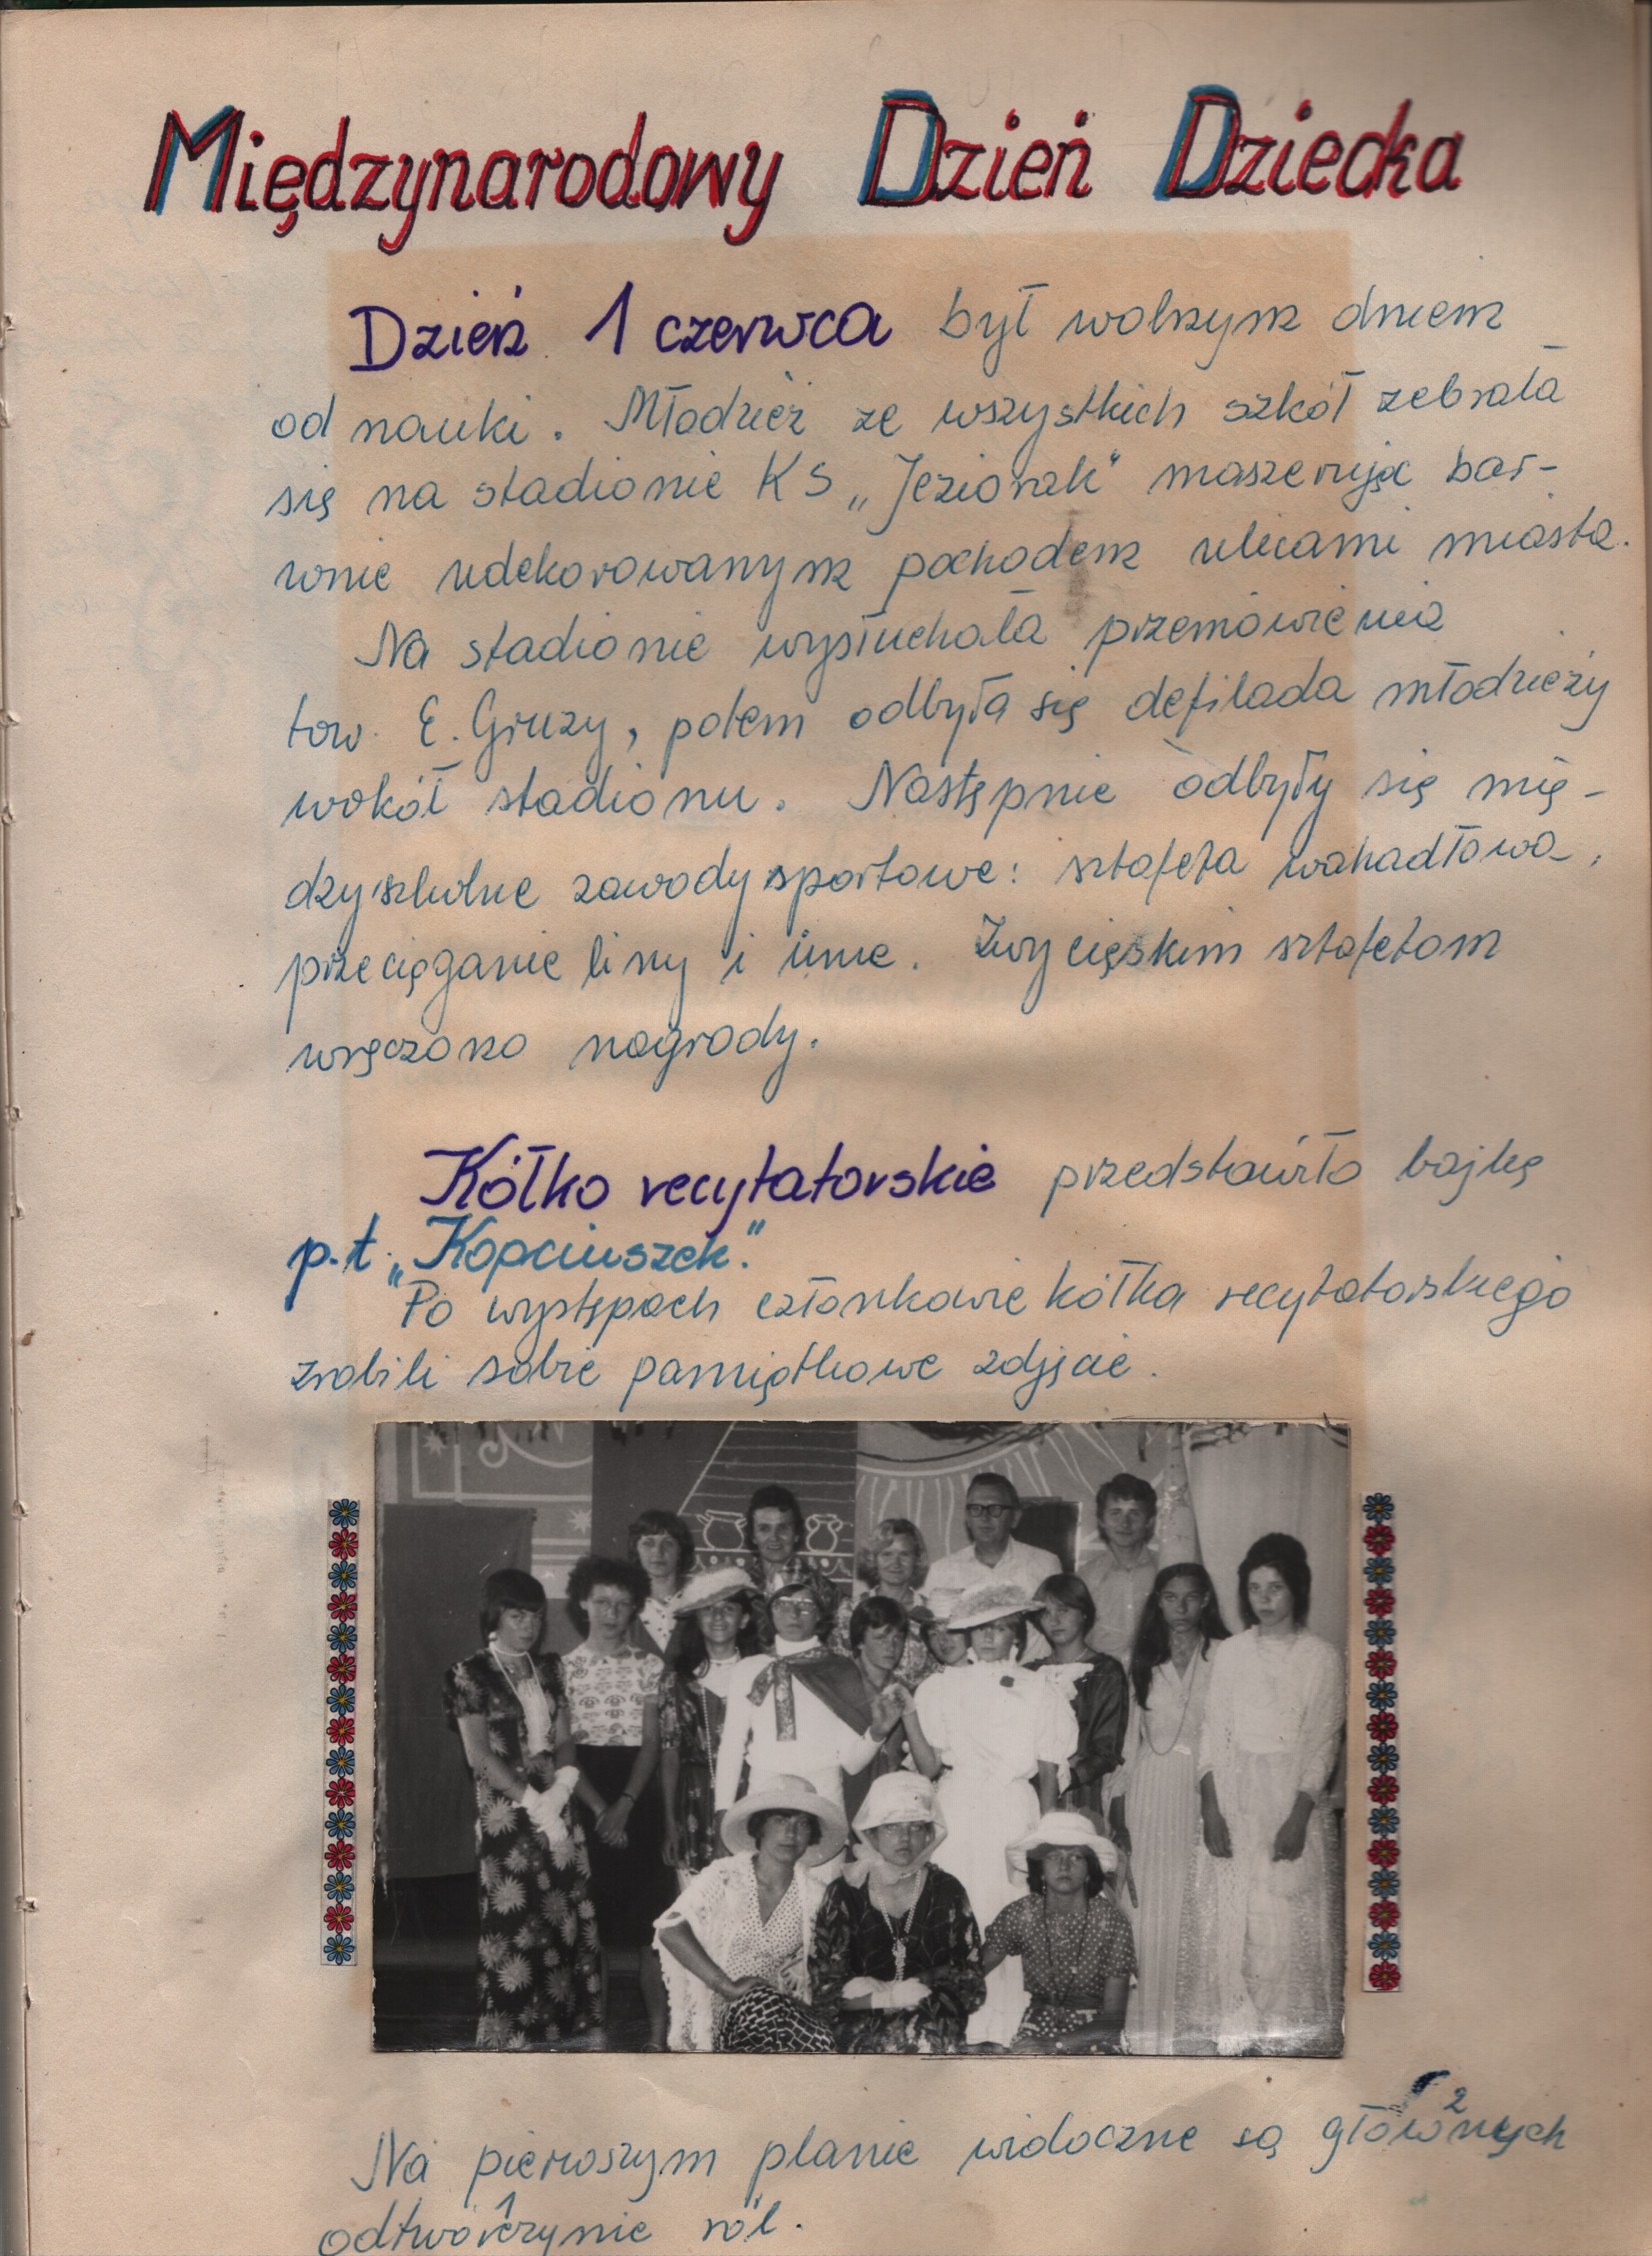 Międzynarodowy Dzień Dziecka
Dzień 1 czerwca był wolnym dniem
od nauki. Młodzież ze wszystkich szkół zebrała
się na stadionie KS „Jeziorak" maszerując bar-
wnie udekorowanym pochodem ulicami miasta.
Na stadionie wysłuchała przemówienia
tow. E. Gruzy, potem odbyła się defilada młodzieży
wokół stadionu. Następnie odbyły się mię-
dzyszkolne zawody sportowe: sztafeta wahadłowa,
przeciąganie liny i inne. Zwycięskim sztafetom
wręczono nagrody.
Kółko recytatorskie przedstawiło bajkę
p.t. „Kopciuszek."
Po występach członkowie kółka recytatorskiego
zrobili sobie pamiątkowe zdjęcie.
Na pierwszym planie widoczne są głównych 2
odtwórczynie 1 ról.